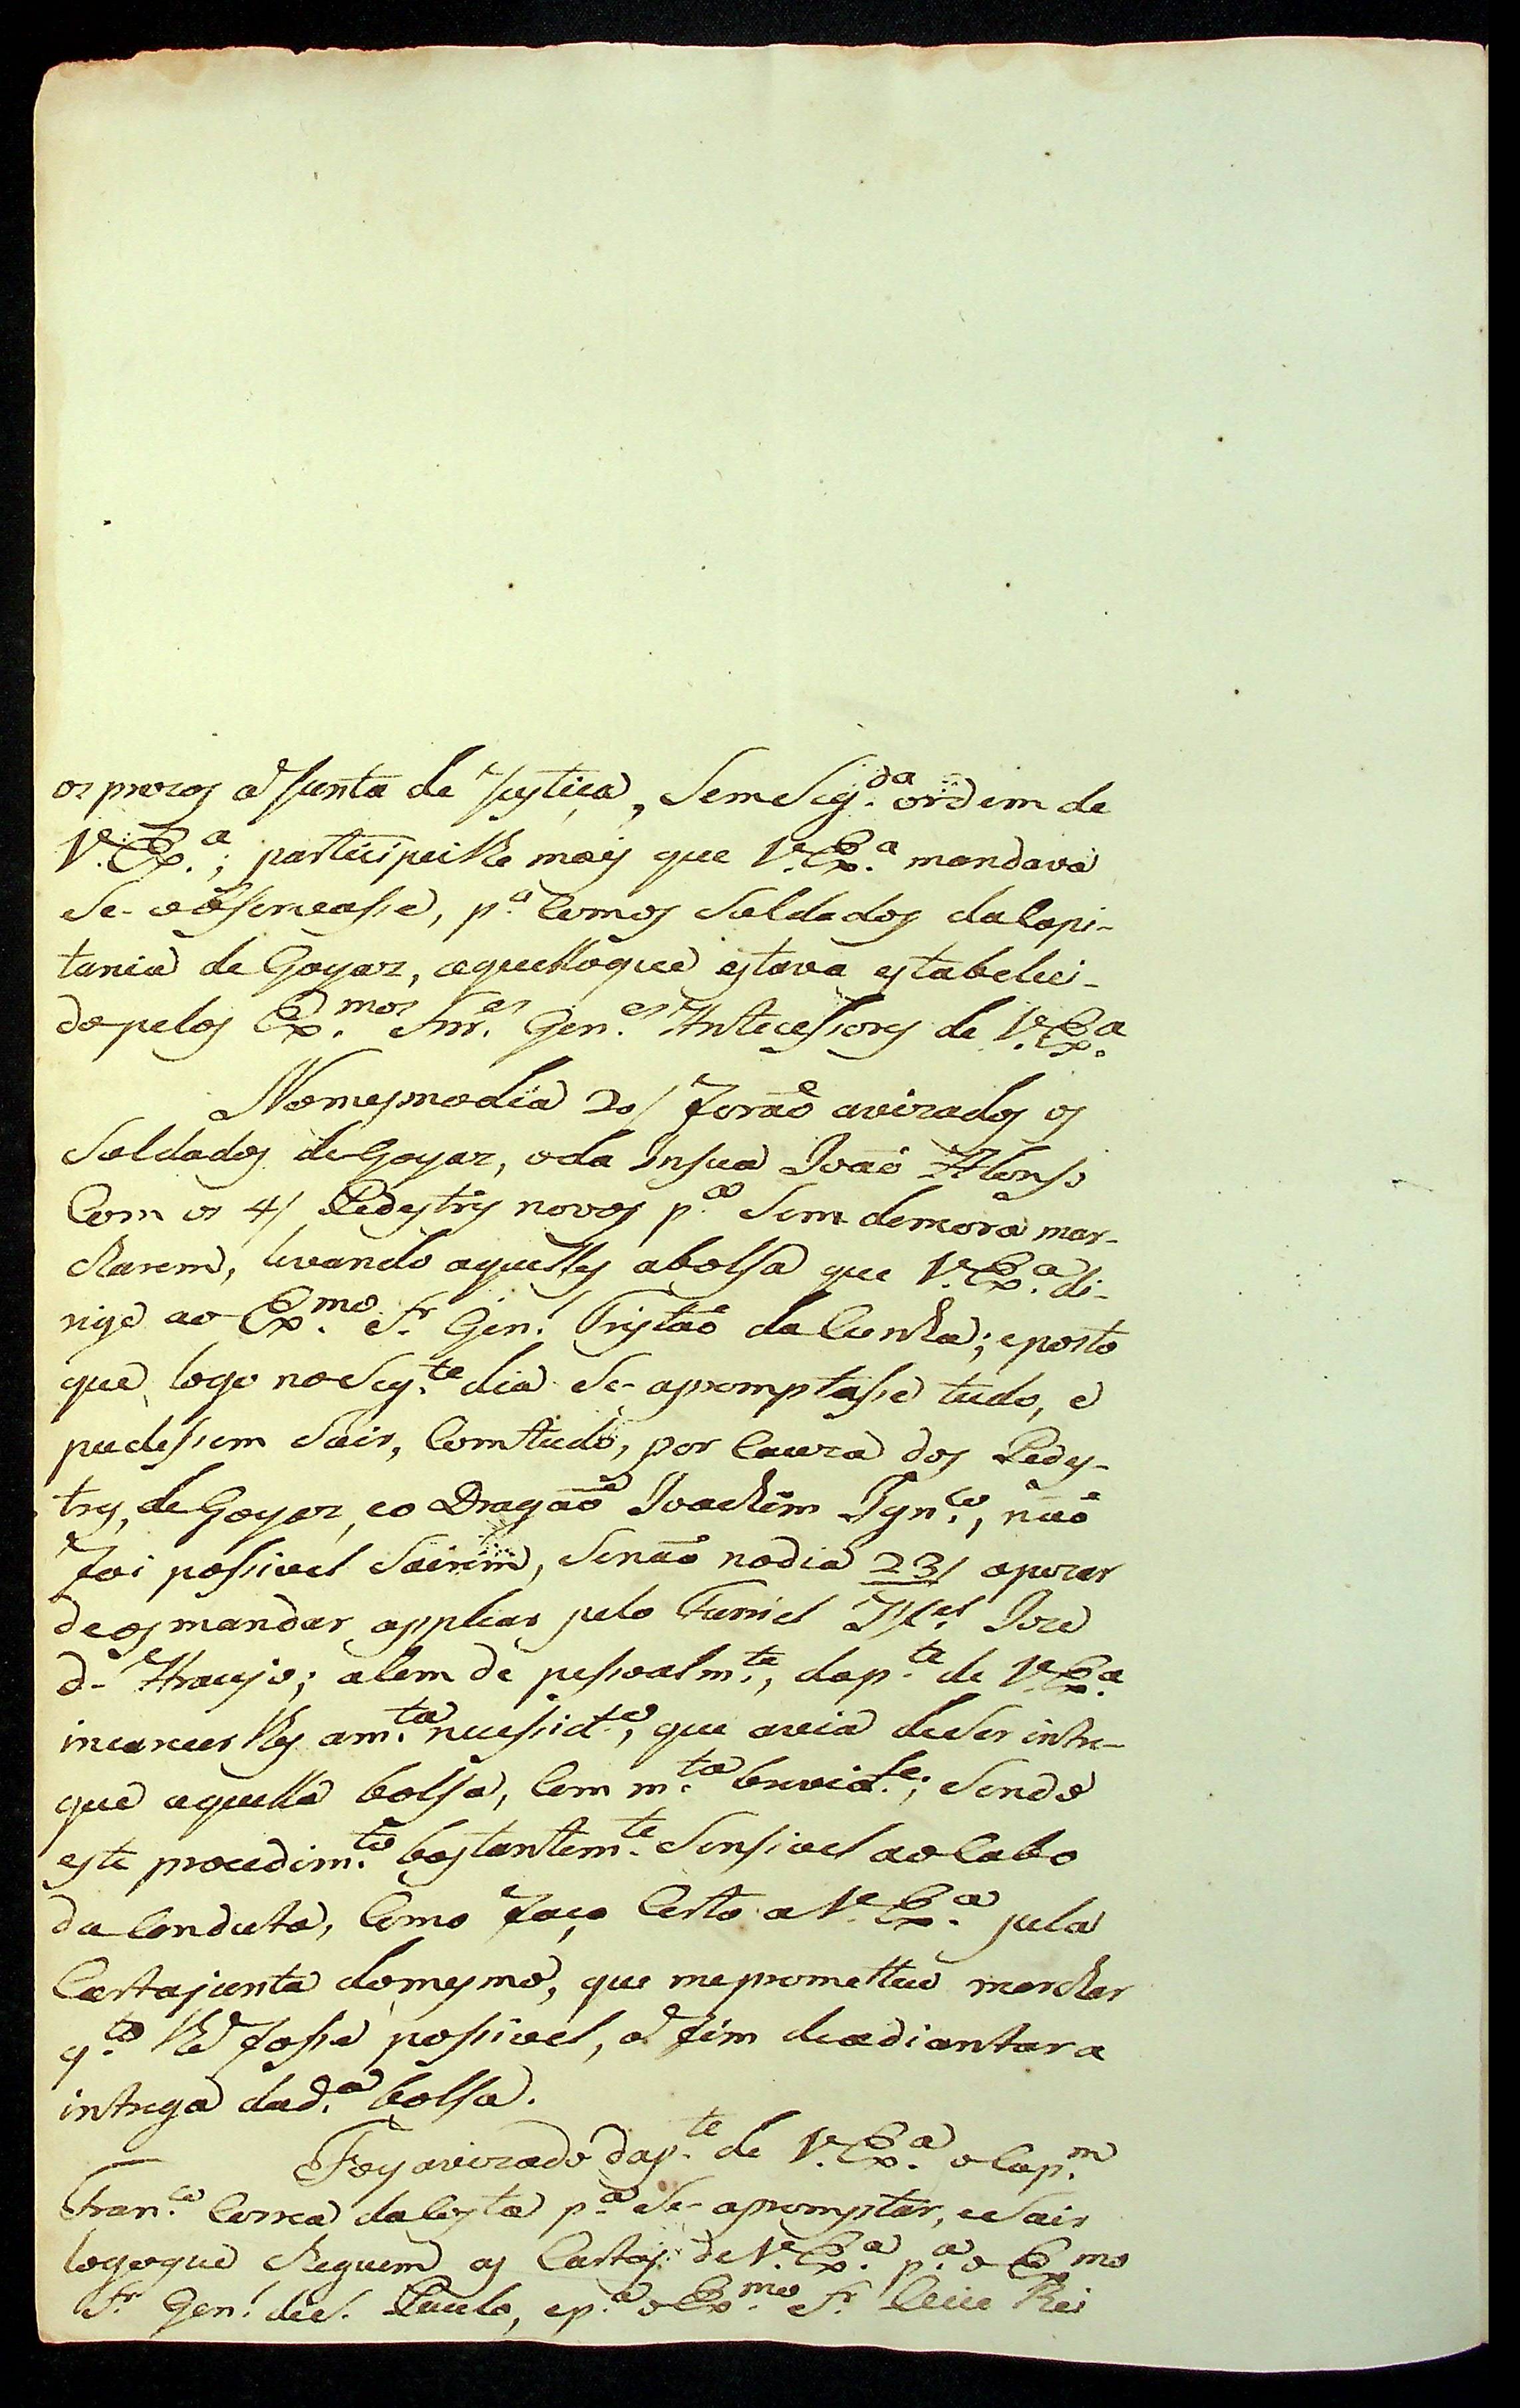 os prezos a Junta de Justiça, Sem Seg.da ordem de
V. Ex.a; participeilhe mais que V. Ex.a mandava
Se-observasse, p.a Com os Soldados da Capi-
tania de Goyaz, aquillo que estava estabeleci-
do pelos Ex.mos Snr.es Gen.es Antecessores de V. Ex.a
No mesmo dia 20/ forão avizados os
Soldados de Goyaz, o da Insua João Afonso
Com os 4/ Pedestres novos p.a Sem demora mar-
charem, levando aquelles a bolsa que V. Ex.a di-
rige ao Ex.mo Sr. Gen.l Tristão da Cunha; e posto
que logo no Seg.te dia Se-apromptasse tudo, e
pudessem Sair, Comtudo, por Cauza dos Pedes-
tres, de Goyaz, e o Dragão Joachim Ign.co, não
foi possivel Sairem, Senão no dia 23/ apezar
de os mandar applicar pelo Furriel Joze
d-Araujo; alem de pessoalm.te, da p.te de V. Ex.a
incarecerlhes a m.ta necessid.e, que avia de Ser intre-
gue aquella bolsa, Com m.ta brevid.e; Sendo
este procedim.to bastantem.te Sensivel ao Cabo
da Conduta, Como faço Certo a V. Ex.a pela
Carta junta do mesmo, que me prometteu marchar
q.to lhe fosse possivel, a fim de adiantar a
intrega da d.a bolsa.
Foy avizado da p.te de V. Ex.a o Cap.m
Fran.co Correa da Costa p.a Se-apromptar, e Sair
logo que cheguem as Cartas de V. Ex.a p.a o Ex.mo
Sr. Gen.l de S. Paulo, e p.a o Ex.mo Sr. Vice Rei